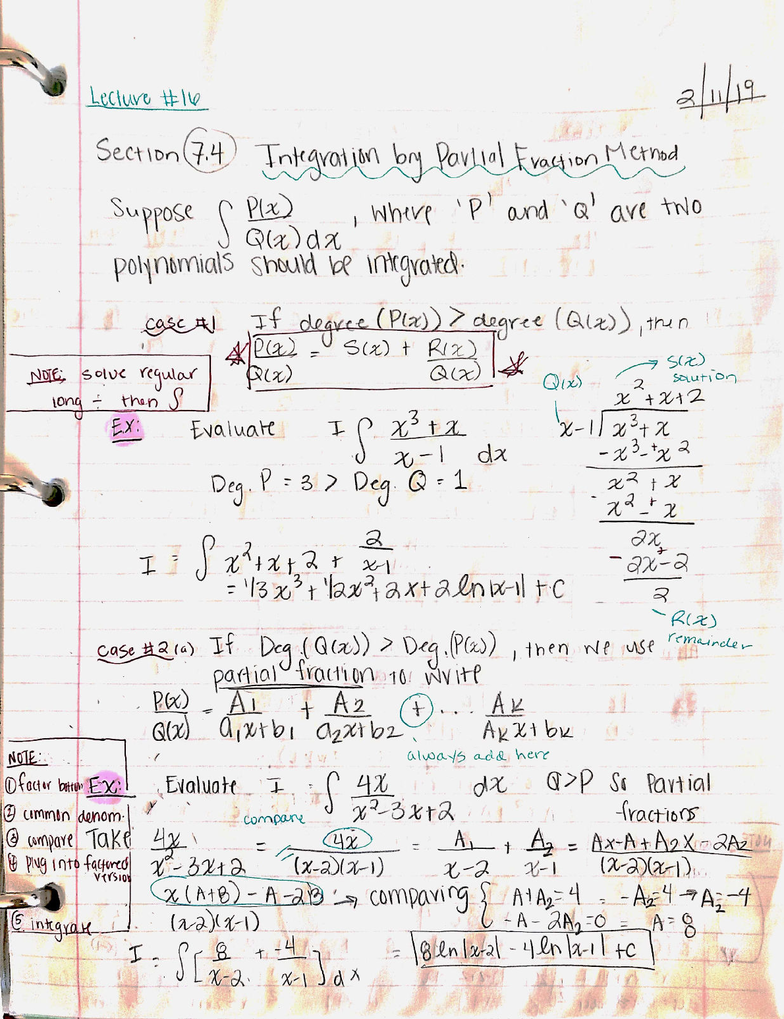 Lecture #16
2/11/19
Section 7.4 Integration by Partial Fraction Method
Suppose ∫ P(x)/Q(x) dx, where 'P' and 'Q' are two
polynomials should be integrated.
case #1 If degree (P(x)) > degree (Q(x)), then
P(x)/Q(x) = S(x) + R(x)/Q(x)
NOTE: solve regular
long ÷ then ∫
Q(x)
S(x)
x² + x + 2
x-1 ) x³ + x
- x³ -+ x²
x² + x
- x² -+ x
2x
- 2x -+ 2
2
R(x)
remainder
Ex: Evaluate I ∫ x³ + x / x - 1 dx
Deg. P = 3 > Deg. Q = 1
I = ∫ x² + x + 2 + 2/x-1
= 1/3 x³ + 1/2 x² + 2x + 2 ln|x-1| + C
case #2 (a) If Deg (Q(x)) > Deg. (P(x)), then we use
partial fraction to write
P(x)/Q(x) = A1/a1x+b1 + A2/a2x+b2 + ... Ak/Akx+bk
always add here
NOTE:
① factor bottom
② common denom.
③ compare
④ plug into factored
version
⑤ integrate
Ex: Evaluate I = ∫ 4x / x² - 3x + 2 dx Q>P so Partial
fractions
compare
Take 4x / x² - 3x + 2 = 4x / (x-2)(x-1) = A1/x-2 + A2/x-1 = Ax - A + A2x - 2A2 / (x-2)(x-1)
x(A+B) - A - 2B / (x-2)(x-1) → comparing { A + A2 = 4 = -A2 = 4 → A2 = -4
-A - 2A2 = 0 = A = 8
I = ∫ [ 8/x-2 + -4/x-1 ] dx = 8 ln|x-2| - 4 ln|x-1| + C